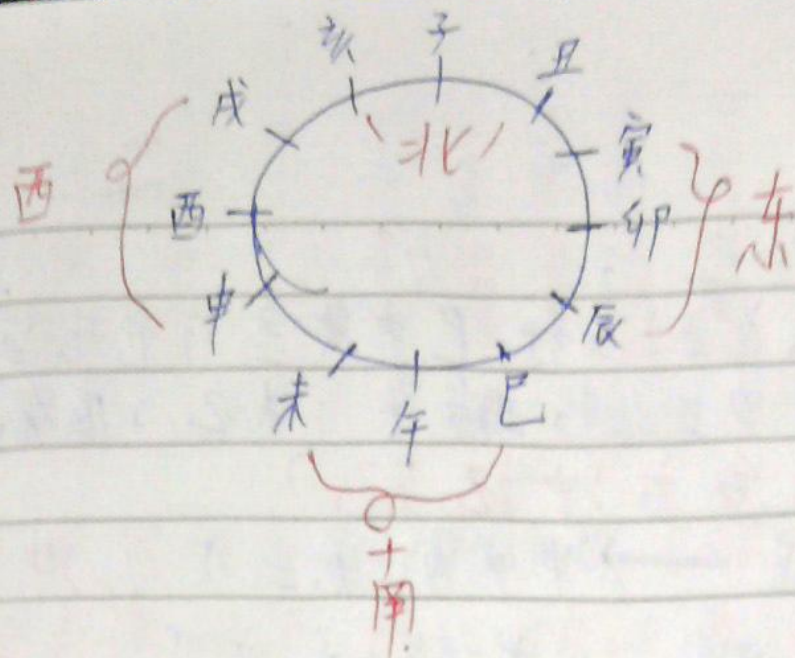 亥 子 丑
戌 北 寅
西 酉 卯 东
申 辰
未 午 巳
南